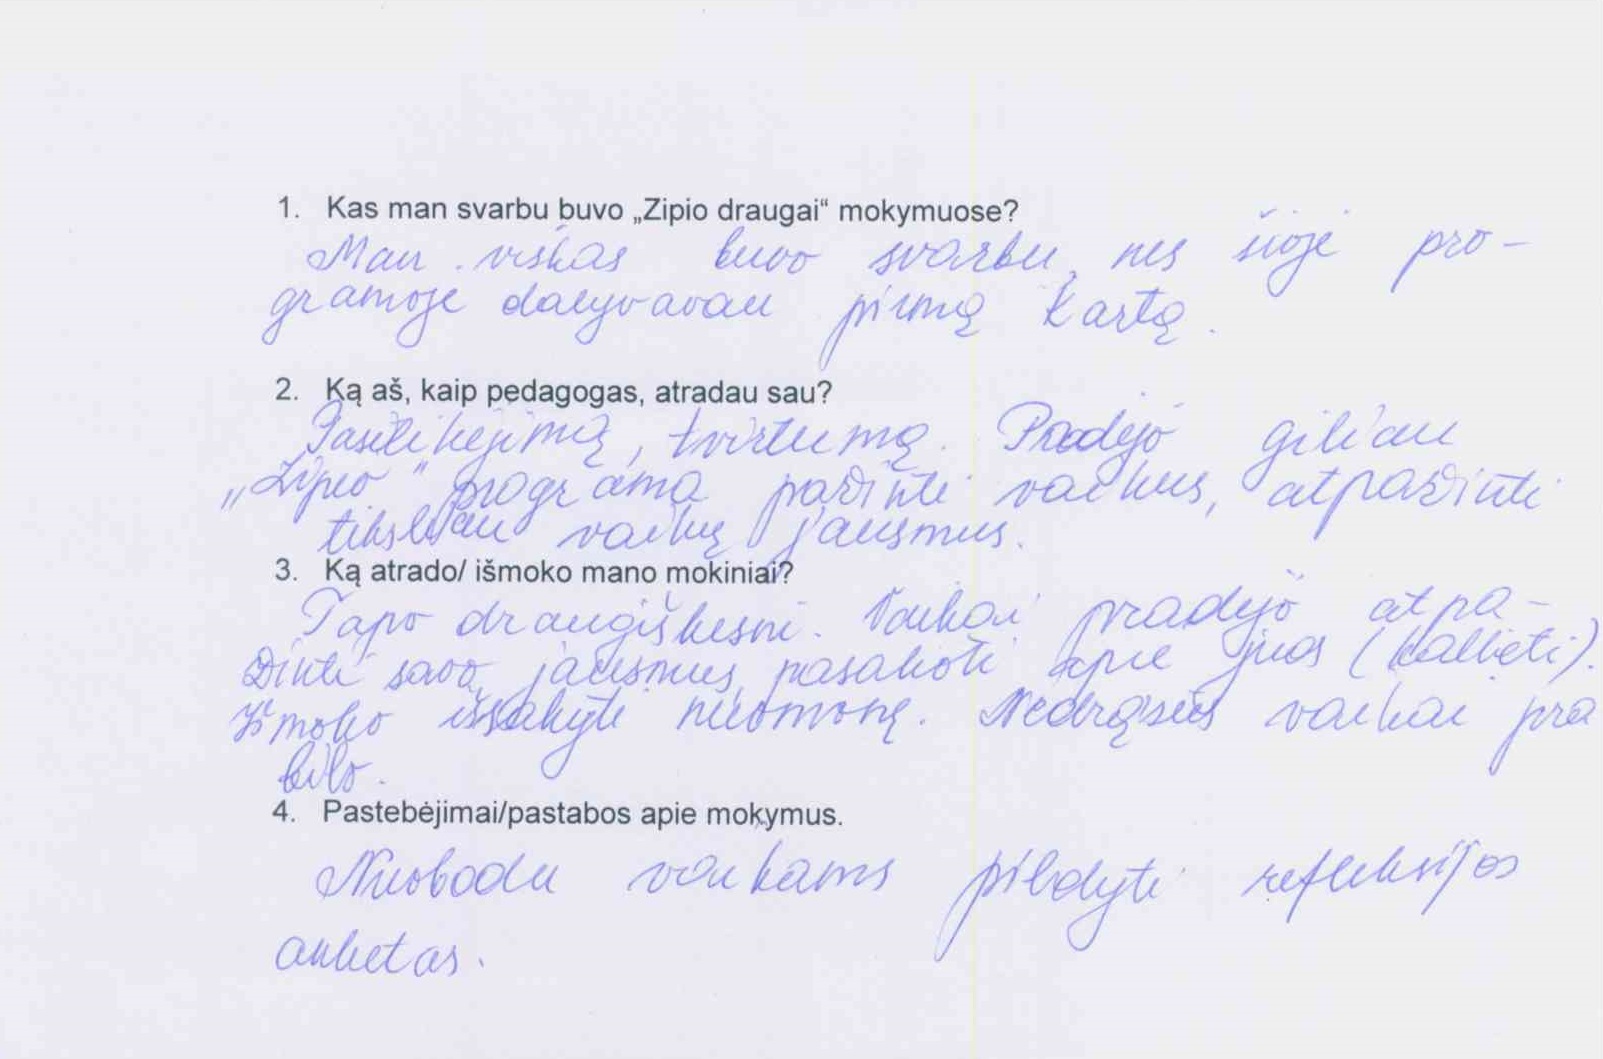 1. Kas man svarbu buvo „Zipio draugai“ mokymuose?
Man viskas buvo svarbu, nes šioje pro-
gramoje dalyvavau pirmą kartą.
2. Ką aš, kaip pedagogas, atradau sau?
Pasitikėjimą, tvirtumą. Padėjo giliau
„Zipio“ programa pažinti vaikus, atpažinti
tiksliau vaikų jausmus.
3. Ką atrado/ išmoko mano mokiniai?
Tapo draugiškesni. Vaikai pradėjo atpa-
žinti savo jausmus, pasakoti apie juos (kalbėti).
Išmoko išsakyti nuomonę. Nedrąsūs vaikai pra
bilo.
4. Pastebėjimai/pastabos apie mokymus.
Nuobodu vaikams pildyti refleksijos
anketas.